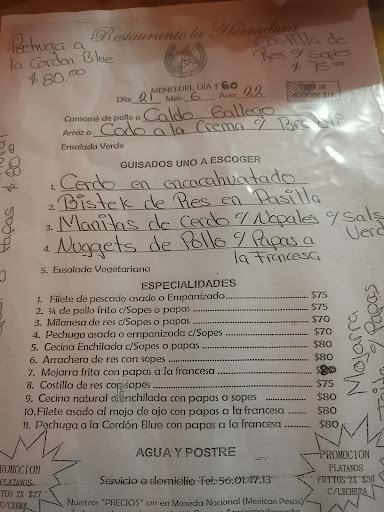 Restaurante la Herradura
Pechuga a
la Cordon Blue
$80.00
Costilla de
Res c/ Sopes
$75.00
MENÚ DEL DÍA $60
Día: 21 Mes: 6 Año: 22
Consomé de pollo o Caldo Gallego
Arroz o Codo a la Crema c/
Ensalada Verde
GUISADOS UNO A ESCOGER
1. Cerdo en encacahuatado
2. Bistek de Res en Pasilla
3. Manitas de Cerdo c/ Nopales c/ Salsa
Verde
4. Nuggets de Pollo c/ Papas a
la Francesa
5. Ensalada Vegetariana
ESPECIALIDADES
1. Filete de pescado asado o Empanizado $75
2. ¼ de pollo frito c/Sopes o papas $75
3. Milanesa de res c/Sopes o papas $70
4. Pechuga asada o empanizada c/Sopes $70
5. Cecina Enchilada c/Sopes o papas $80
6. Arrachera de res con sopes $80
7. Mojarra frita con papas a la francesa
8. Costilla de res con sopes $75
9. Cecina natural o enchilada con papas o sopes $80
10. Filete asado al mojo de ajo con papas a la francesa $80
11. Pechuga a la Cordón Blue con papas a la francesa $80
Mojarra
c/ Papas
AGUA Y POSTRE
Servicio a domicilio Tel. 56.01.47.13
ROMOCION
PLATANOS
TOS 2X $27
C/CREMA
PROMOCION
PLATANOS
FRITOS 2X $30
C/LECHERA
Nuestros "PRECIOS" son en Moneda Nacional (Mexican Pesos)